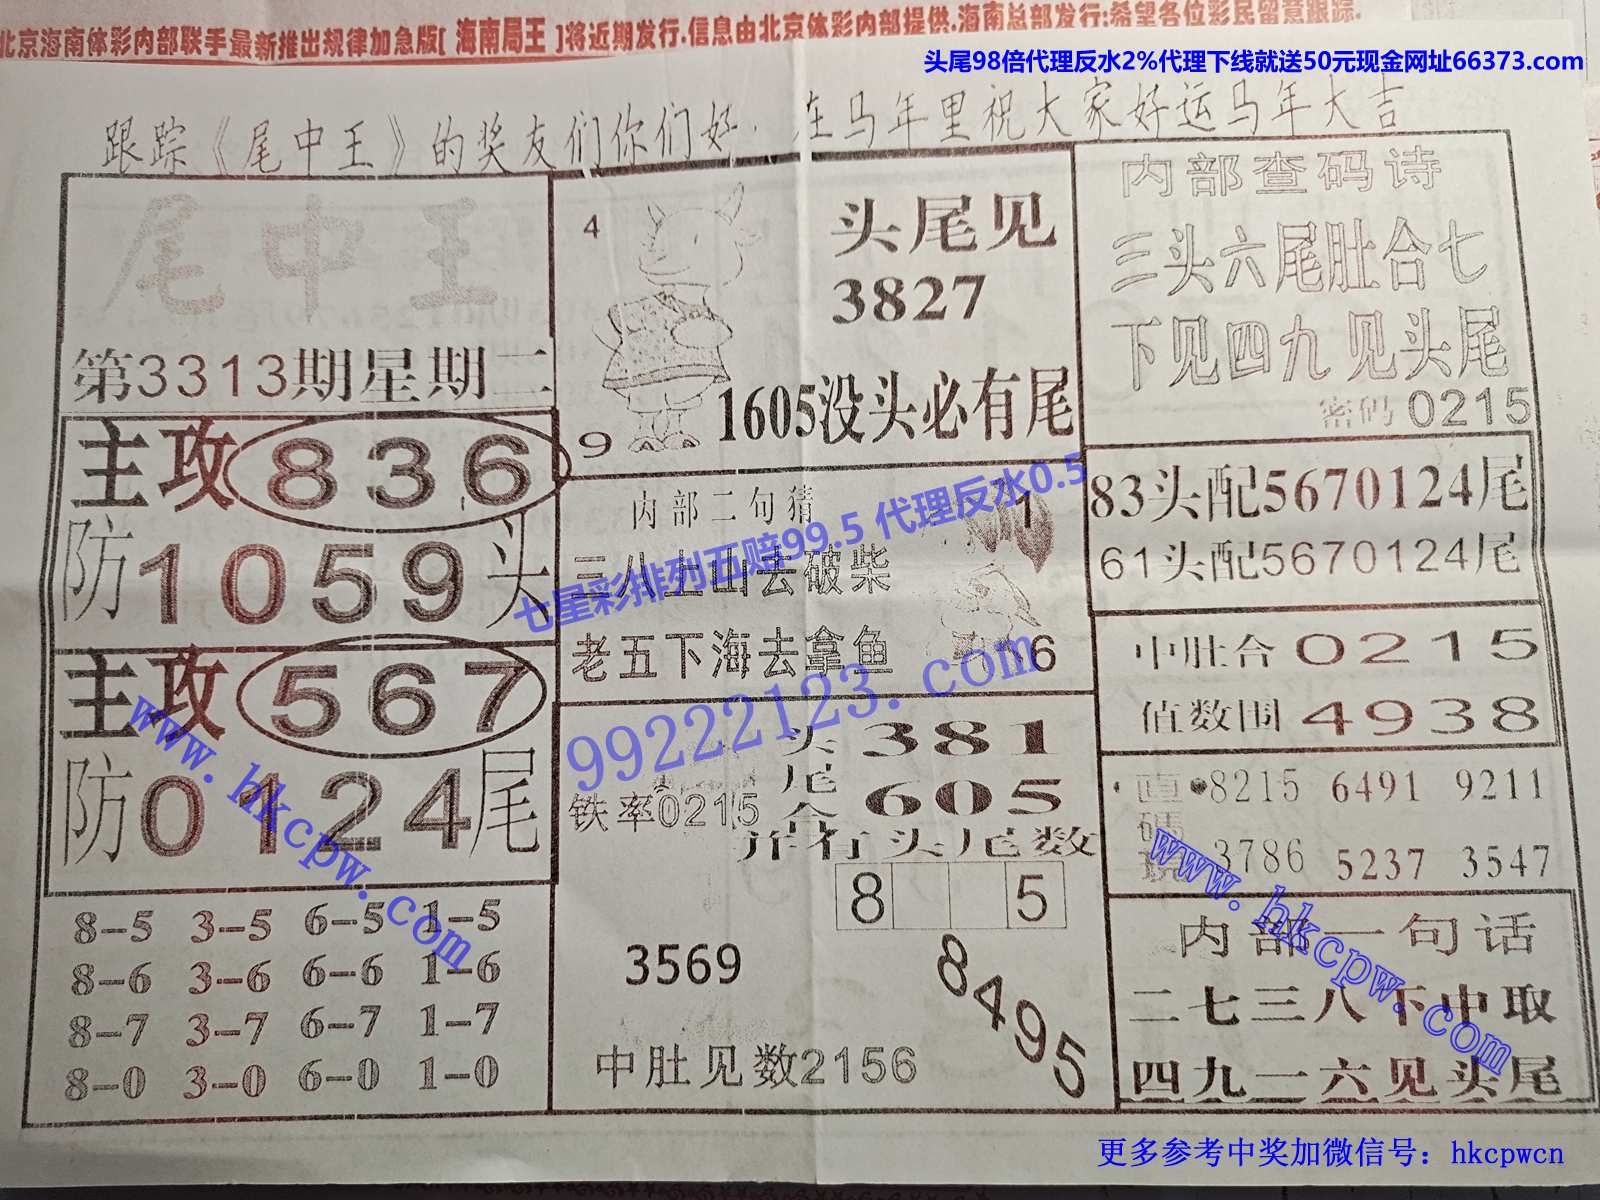 北京海南体彩内部联手最新推出规律加急版[海南局王]将近期发行.信息由北京体彩内部提供.海南总部发行;希望各位彩民留意跟踪.
头尾98倍代理反水2%代理下线就送50元现金网址66373.com
跟踪《尾中王》的奖友们你们好.在马年里祝大家好运马年大吉
尾中王
第3313期星期二
主攻836
防1059头
主攻567
防0124尾
8-5 3-5 6-5 1-5
8-6 3-6 6-6 1-6
8-7 3-7 6-7 1-7
8-0 3-0 6-0 1-0
4
头尾见
3827
1605没头必有尾
9
内部二句猜
1
三八上山去破柴
老五下海去拿鱼
6
头381
尾
合605
铁率0215
开行头尾数
8 5
3569
8495
中肚见数2156
内部查码诗
三头六尾肚合七
下见四九见头尾
密码0215
83头配5670124尾
61头配5670124尾
中肚合0215
值数围4938
直码现
8215 6491 9211
3786 5237 3547
内部一句话
二七三八下中取
四九一六见头尾
七星彩排列五赔99.5 代理反水0.5
99222123.com
www.hkcpw.com
www.hkcpw.com
更多参考中奖加微信号：hkcpwcn